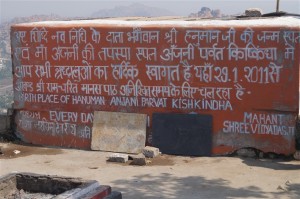 अष्ट सिद्धि नव निधि के दाता भगवान श्री हनुमान जी की जन्म स्थल
एवं माँ अंजनी की तपस्या स्थल अंजनी पर्वत किष्किंधा में
आप सभी श्रद्धालुओं का हार्दिक स्वागत है यहाँ 29.1.2011 से
अखण्ड श्री रामचरित मानस पाठ चल रहा है-
BIRTH PLACE OF HANUMAN ANJANI PARVAT KISHKINDHA
EVERY DAY
MAHANT
SHREE VIDYADAS